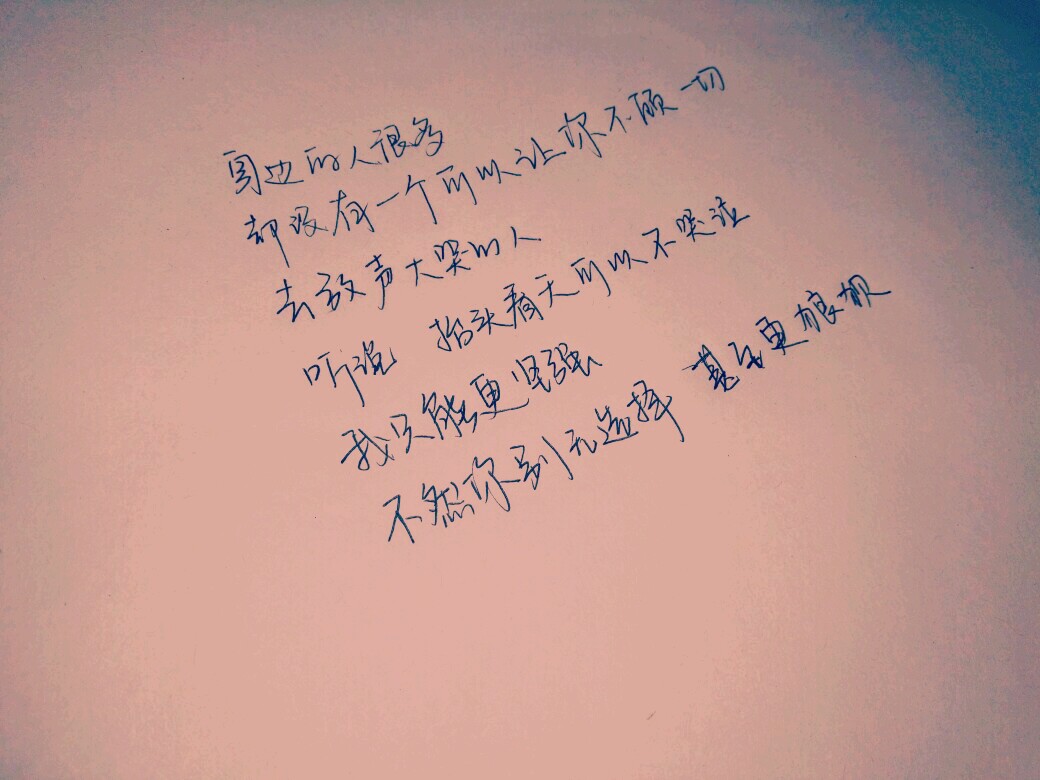 身边的人很多
却没有一个可以让你不顾一切
去放声大哭的人
听说 抬头看天可以不哭泣
我只能更坚强
不然你别无选择 甚至更狼狈